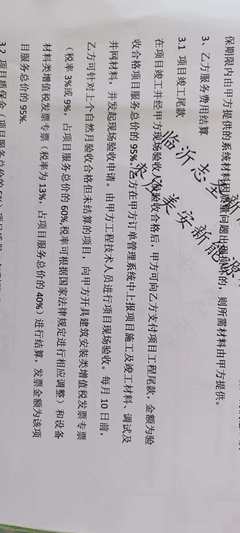 保期限内由甲方提供的系统材料因质量问题出现的，则所需材料由甲方提供。
3、乙方服务费用结算
3.1 项目竣工尾款
在项目竣工并经甲方现场验收人员验收合格后，甲方可向乙方支付项目工程尾款，金额为验
收合格项目服务总价的95%，乙方在甲方订单管理系统中上报项目施工及竣工材料、调试及
并网材料，并发起现场验收申请。由甲方工程技术人员进行项目现场验收。每月10日前，
乙方可针对上个自然月验收合格但未结算的项目，向甲方开具建筑安装类增值税发票专票
（税率3%或9%，占项目服务总价的60%，税率可根据国家法律规定进行相应调整）和设备
材料类增值税发票专票（税率为13%，占项目服务总价的40%）进行结算，发票金额为该项
目服务总价的95%。
3.2 项目质保金（项目服务总价的5%）
临沂志
美安新能源